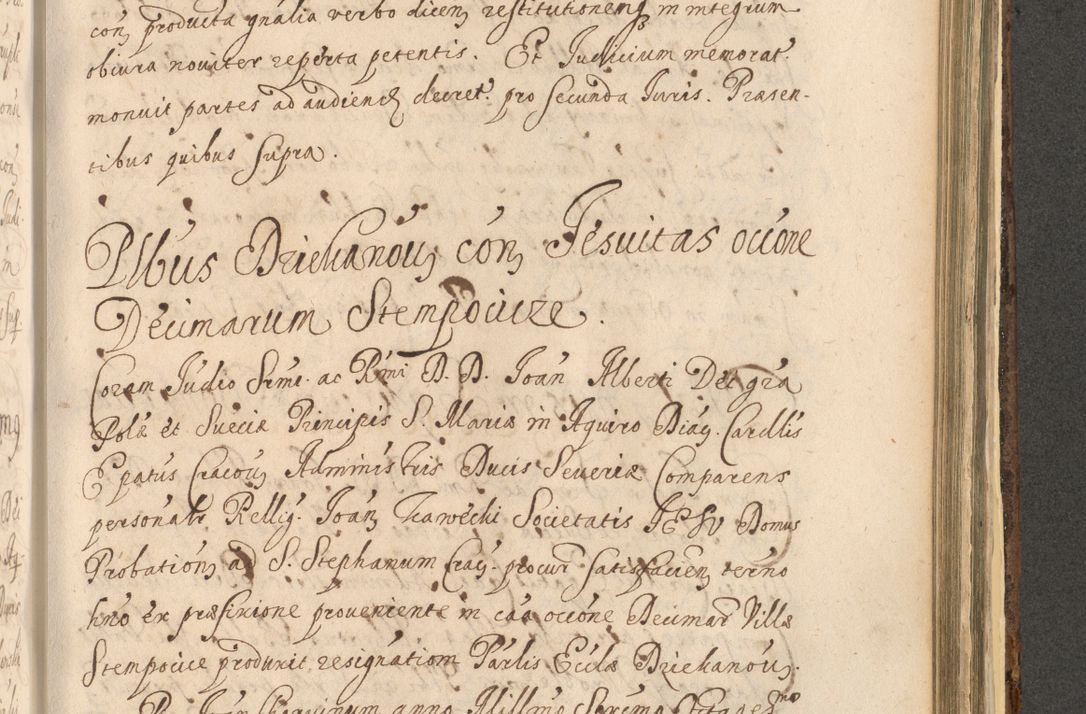 con, producta gnalia verbo dicen, restitutionemq in integrum
obiura noviter reperta petentis. Et Judicium memorat.
monuit partes ad audiend decret. pro secunda Iuris. Præsen-
tibus quibus supra.
Plbus Dziekanou, con, Jesuitas occone
Decimarum Stempocicze.
Coram Judio Srmi. ac Rmi D. D. Joan Alberti Dei gra
Polæ et Sueciæ Principis S. Mariæ in Aquiro Diac. Cardlis
Epatus Cracou, Administris Ducis Severiæ Comparens
personalr Rellig. Joan, Societatis JESV Domus
Probation, ad S. Stephanum Crac. procur satisfacien, termo
hno ex præfixione proveniente in caa occone Decimar Villæ
Stempocice produxit resignationi Parlis Ecclæ Dziekanou,
anno Millmo